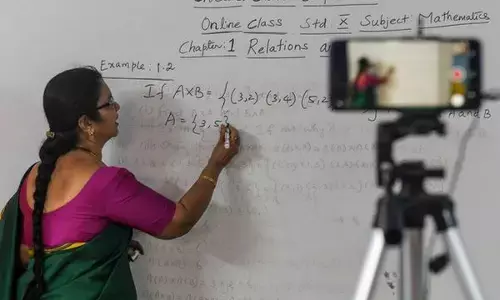 Online Class Std X Subject Mathematics
Chapter:1 Relations
Example: 1.2
If A×B = {(3,2) (3,4) (5,2 A and B
A = {3,5